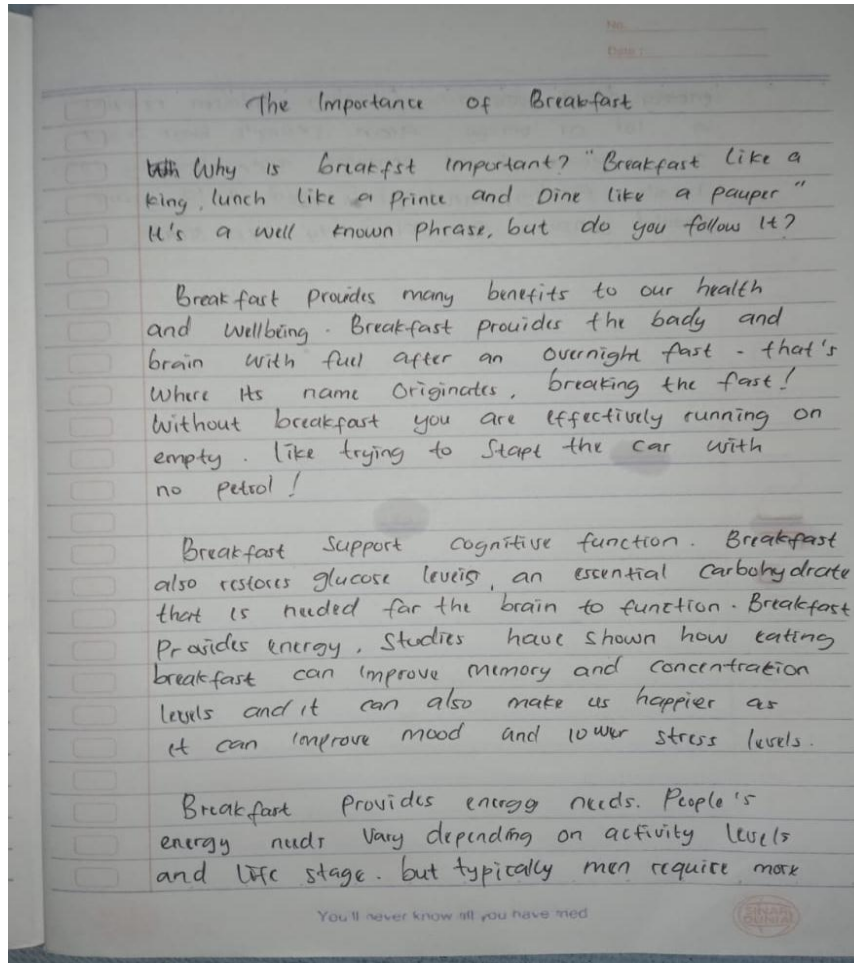 No.
Date :
The Importance of Breakfast
Why is breakfst important? "Breakfast like a
king, lunch like a Prince and Dine like a pauper"
It's a well known phrase, but do you follow it?
Breakfast provides many benefits to our health
and wellbeing. Breakfast provides the bady and
brain with fuel after an overnight fast - that's
where its name originates, breaking the fast!
Without breakfast you are effectively running on
empty. like trying to stapt the car with
no petrol!
Breakfast support cognitive function. Breakfast
also restores glucose levels, an essential carbohydrate
that is needed far the brain to function. Breakfast
Provides energy. Studies have shown how eating
breakfast can improve memory and concentration
levels and it can also make us happier as
it can improve mood and lower stress levels.
Breakfast provides energg needs. People's
energy needs vary depending on activity levels
and life stage. but typically men require more
You'll never know all you have
SINAR
DUNIA